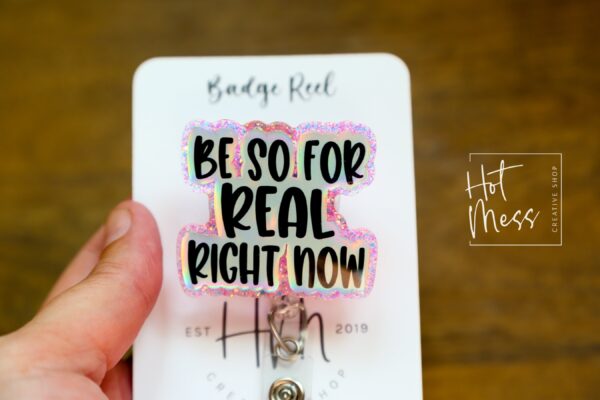 Badge Reel
BE SO FOR
REAL
RIGHT NOW
EST Hm 2019
CREATIVE SHOP
Hot
Mess
CREATIVE SHOP